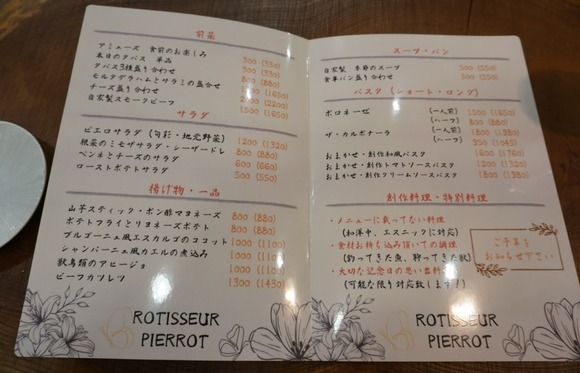 前菜
アミューズ 食前のお楽しみ 300 (330)
本日のタパス 単品 300 (330)
タパス3種盛り合わせ 800 (880)
モルタデラハムとサラミの盛合せ
チーズ盛り合わせ (1650)
自家製スモークビーフ 2000 (2200)
1500 (1650)
サラダ
ピエロサラダ (旬彩・地元野菜) 1200 (1320)
根菜のミモザサラダ・シーザードレ 800 (880)
ペンネとチーズのサラダ 600 (660)
ローストポテトサラダ 500 (550)
揚げ物・一品
山芋スティック・ポン酢マヨネーズ 800 (880)
ポテトフライとリヨネーズポテト 800 (880)
ブルゴーニュ風エスカルゴのココット 1000 (1100)
シャンパーニュ風カエルの煮込み 1000 (1100)
獣鳥類のアヒージョ 1000 (1100)
ビーフカツレツ 1300 (1430)
ROTISSEUR
PIERROT
スープ・パン
自家製 季節のスープ 500 (550)
食事パン盛り合わせ 500 (550)
パスタ (ショート・ロング)
ボロネーゼ (一人前) 1500 (1650)
(ハーフ) 800 (880)
ザ・カルボナーラ (一人前) 1800 (1980)
(ハーフ) 950 (1045)
おまかせ・創作和風パスタ 1600 (1760)
おまかせ・創作トマトソースパスタ 1200 (1320)
おまかせ・創作クリームソースパスタ 1800 (1980)
創作料理・特別料理
・メニューに載ってない料理
(和洋中、エスニックに対応)
・食材お持ち込み頂いての調理
(釣ってきた魚、狩ってきた獣)
・大切な記念日の思い出料
(可能な限り対応致します!)
ご予算を
お知らせ下さい
ROTISSEUR
PIERROT